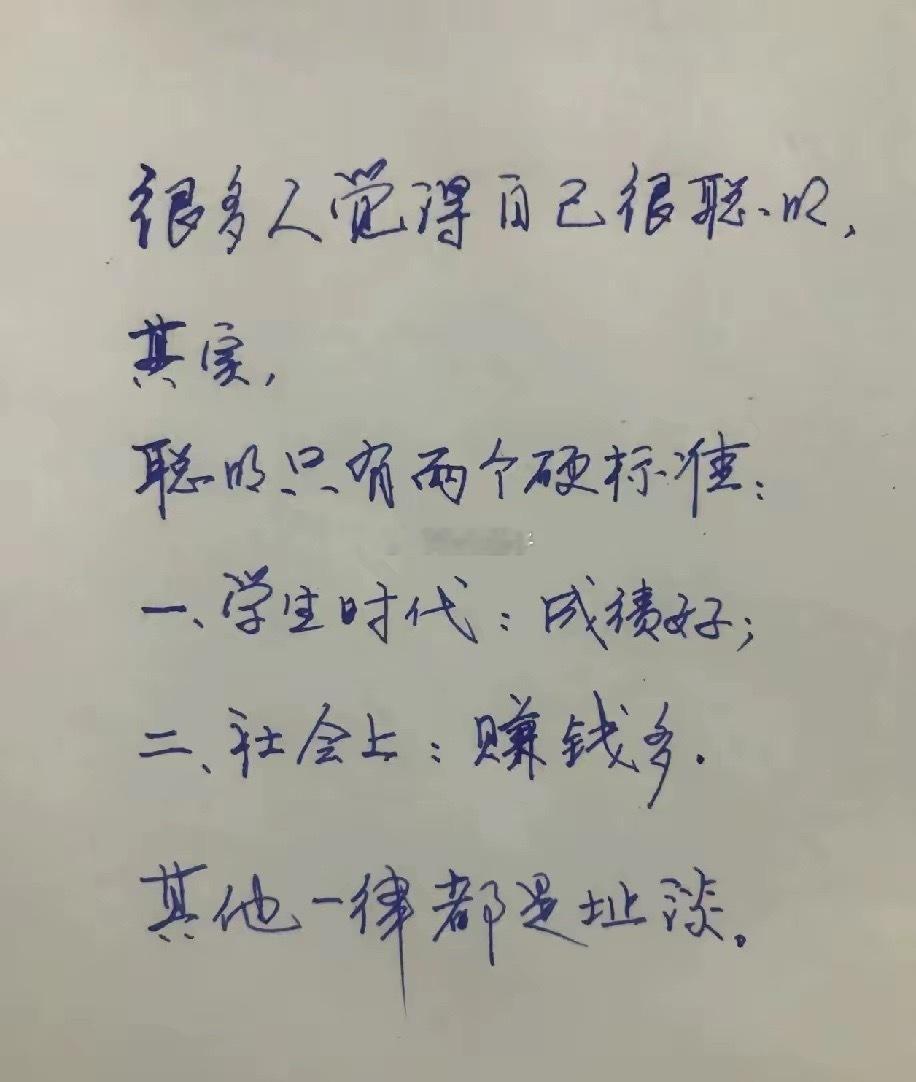 很多人觉得自己很聪明,
其实,
聪明只有两个硬标准:
一、学生时代:成绩好;
二、社会上:赚钱多.
其他一律都是扯淡。